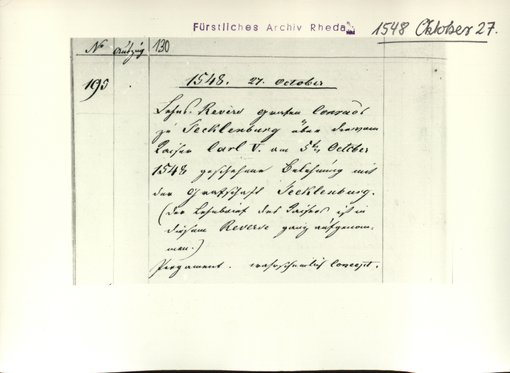 Fürstliches Archiv Rheda
1548 Oktober 27.
No Auszug 130
195
1548. 27. October
Lehns-Revers Grafen Conrads
zu Tecklenburg über die vom
Kaiser Carl V. am 5ten October
1548 geschehene Belehnung mit
der Grafschaft Tecklenburg.
(Der Lehnbrief des Kaisers ist in
diesem Reverse ganz aufgenom-
men.)
Pergament. wahrscheinlich Concept.